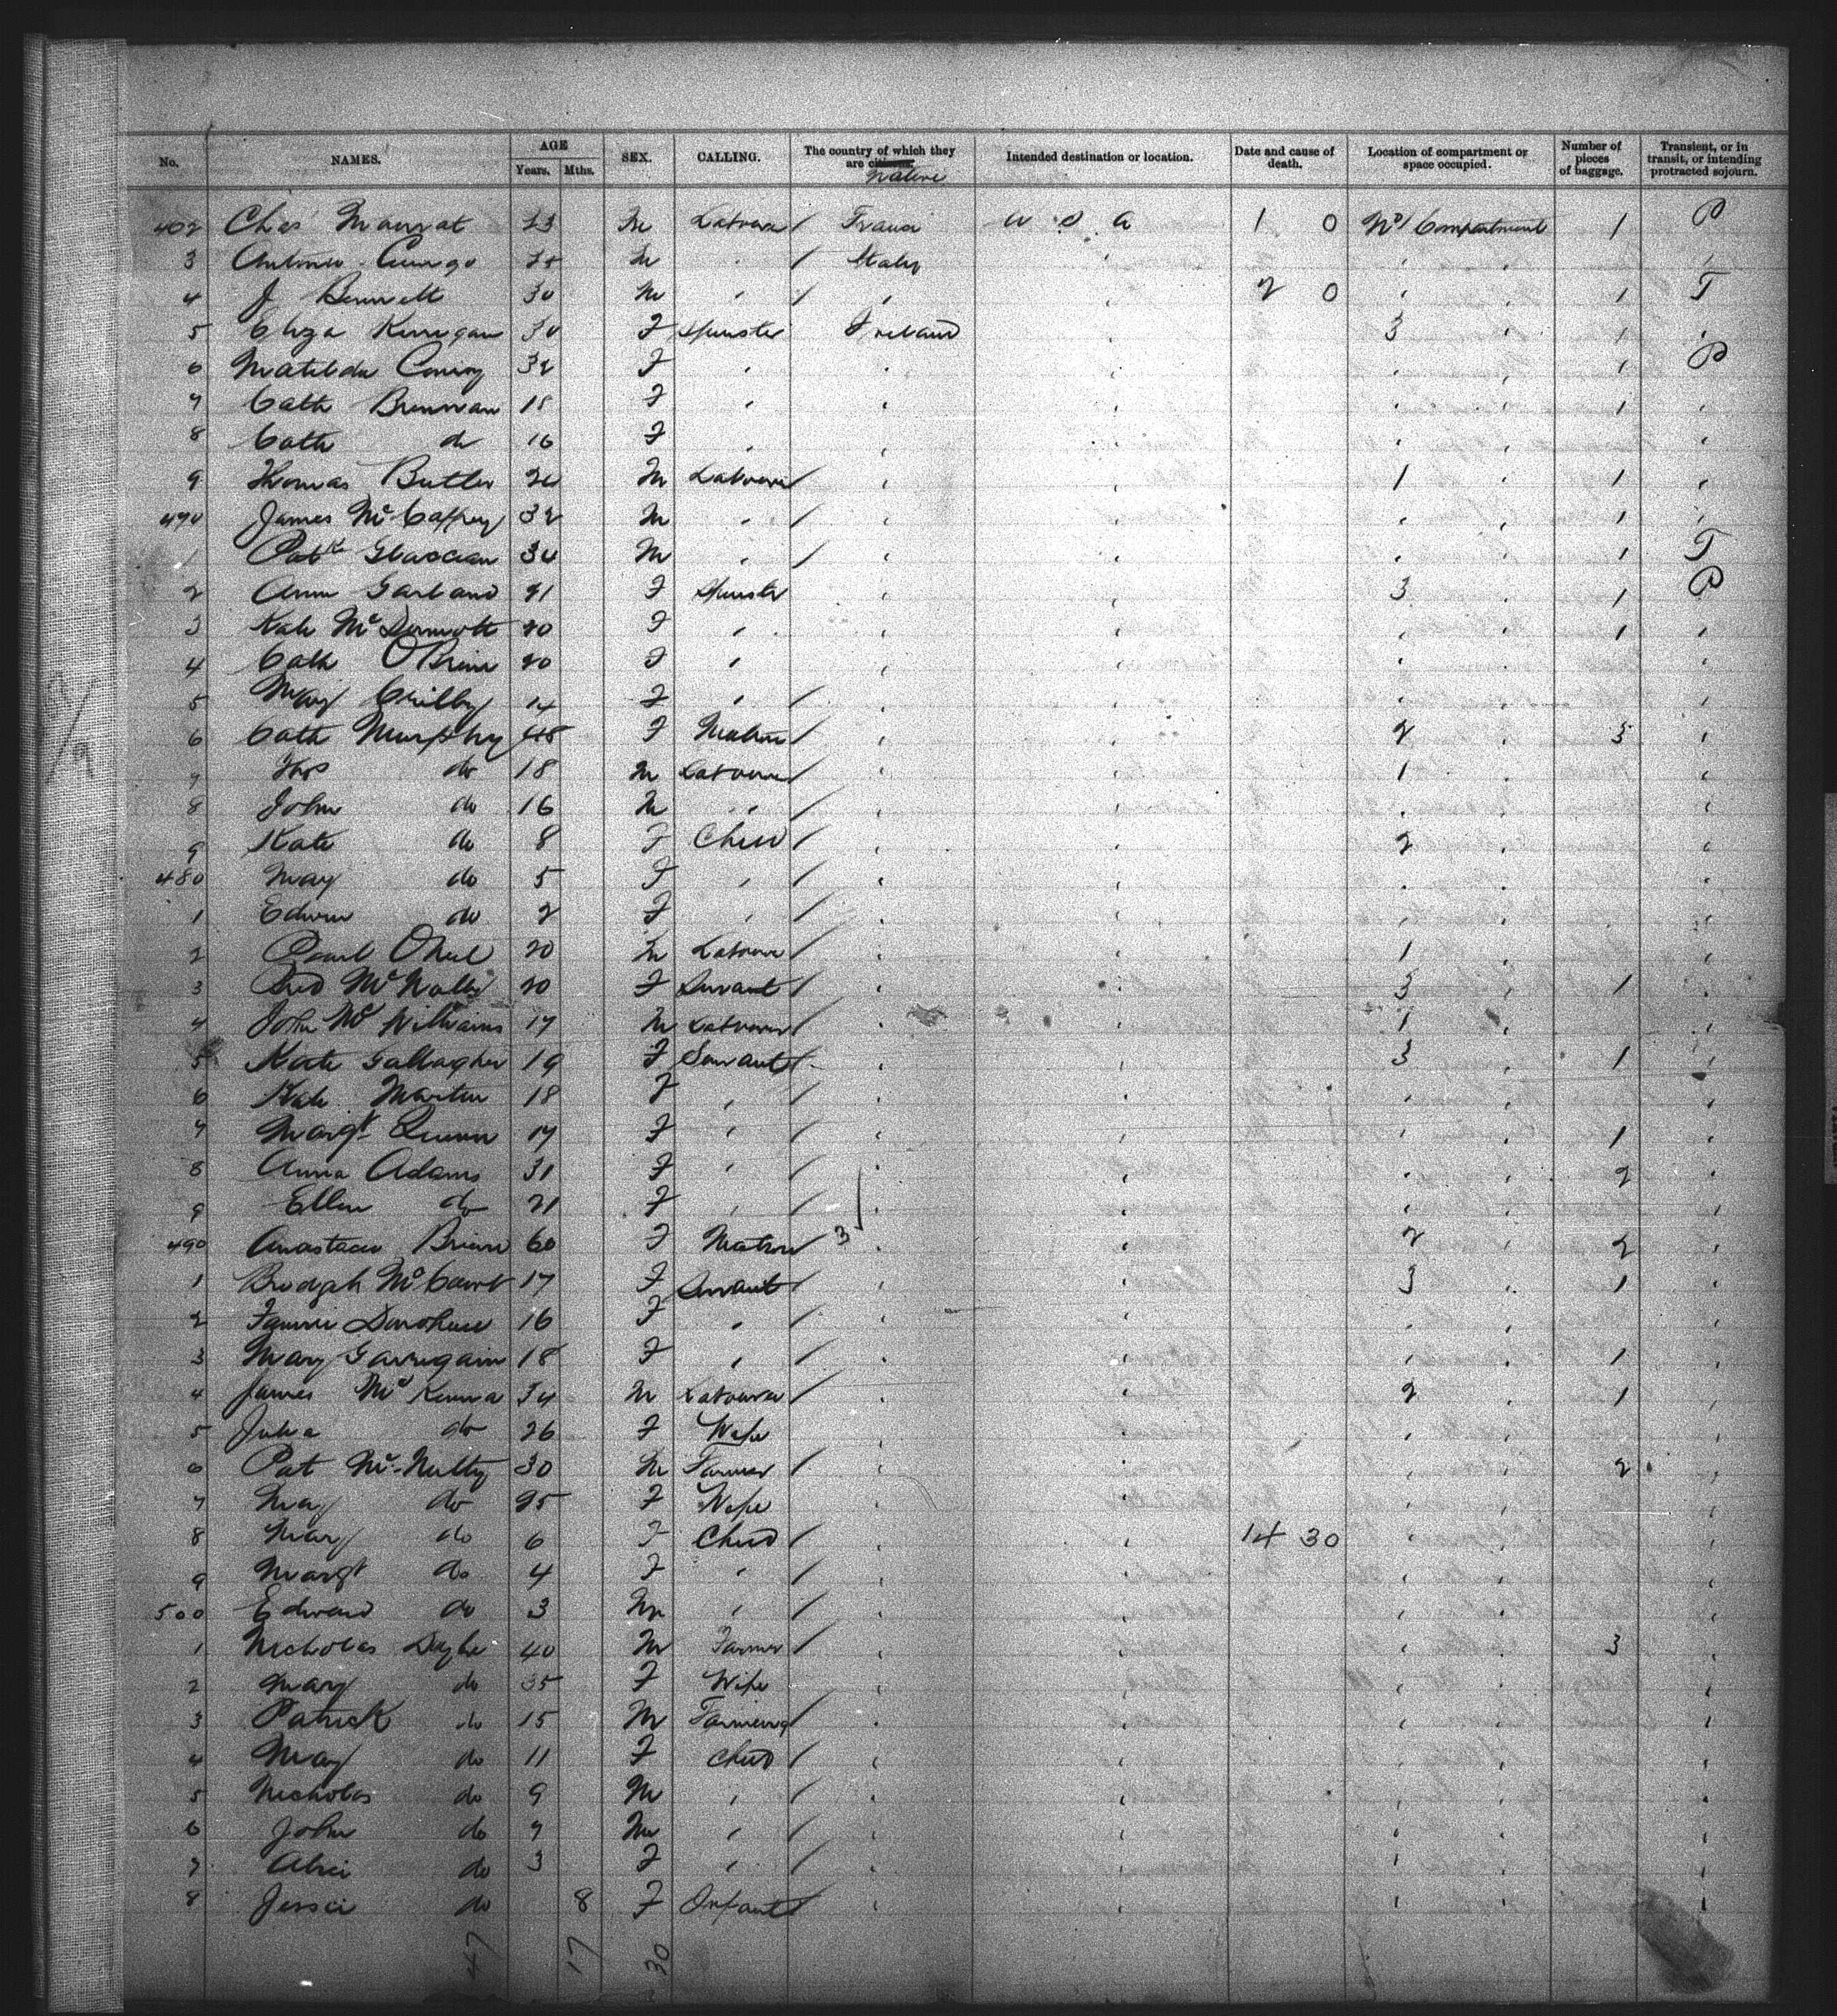 No. NAMES. AGE Years. Mths. SEX. CALLING. The country of which they are citizens. native Intended destination or location. Date and cause of death. Location of compartment or space occupied. Number of pieces of baggage. Transient, or in transit, or intending protracted sojourn.
402 Chas 23 M Labourer / France U S A 1 0 No 1 Compartment 1 P
3 M " / Italy " " " "
4 J Bennett 30 M " / " " 2 0 " " 1 T
5 Eliza Kerrigan 30 F Spinster Ireland " 3 " 1 "
6 Matilda 32 F " " " " " 1 P
7 Cath Brennan 18 F " " " " " 1 "
8 Cath do 16 F " " " " " "
9 Thomas Butler M Labourer / " " 1 " 1 "
James McCaffrey 32 M " / " " " " 1 "
1 Patk 30 M " / " " " " 1 T
2 Ann Garland 21 F Spinster " " 3 " 1 P
3 Kate McDermott 20 F " " " " " 1 "
4 Cath OBrien 20 F " " " " " "
5 Mary 14 F " / " " " " "
6 Cath Murphy 48 F Matron / " " 2 " 3 "
7 Thos do 18 M Labourer / " " 1 " "
8 John do 16 M " / " " " " "
9 Kate do 8 F Child / " " 2 " "
480 May do 5 F " / " " " " "
1 do 2 F " / " " " " "
2 Paul ONeil 20 M Labourer / " " 1 " "
3 McNally 20 F Servant / " " 3 " 1 "
4 John McWilliams 17 M Labourer / " " 1 " "
5 Kate Gallagher 19 F Servant / " " 3 " 1 "
6 Kate Martin 18 F " / " " " " "
7 Margt Quinn 17 F " / " " " " 1 "
8 Anna Adams 31 F " / " " " " 2 "
9 Ellen do 21 F " / " " " " "
490 Brien 60 F Matron / 3 " " 2 " 2 "
1 Bridget McCourt 17 F Servant / " " 3 " 1 "
2 Fannie Donohue 16 F " / " " " " "
3 Mary 18 F " / " " " " 1 "
4 James McKenna 34 M Labourer / " " 2 " 1 "
5 Julia do 26 F Wife " " " " "
6 Pat McNulty 30 M Farmer / " " " " 2 "
7 May do 25 F Wife " " " " "
8 Mary do 6 F Child / " " 14 30 " " "
9 Margt do 4 F " / " " " " "
500 Edward do 3 M " / " " " " "
1 Nicholas 40 M Farmer / " " " " 3 "
2 Mary do 35 F Wife " " " " "
3 Patrick do 15 M / " " " " "
4 May do 11 F Child / " " " " "
5 Nicholas do 9 M " / " " " " "
6 John do 7 M " / " " " " "
7 Alice do 3 F " / " " " " "
8 Jessie do 8 F Infant / " " " " "
47 17 30